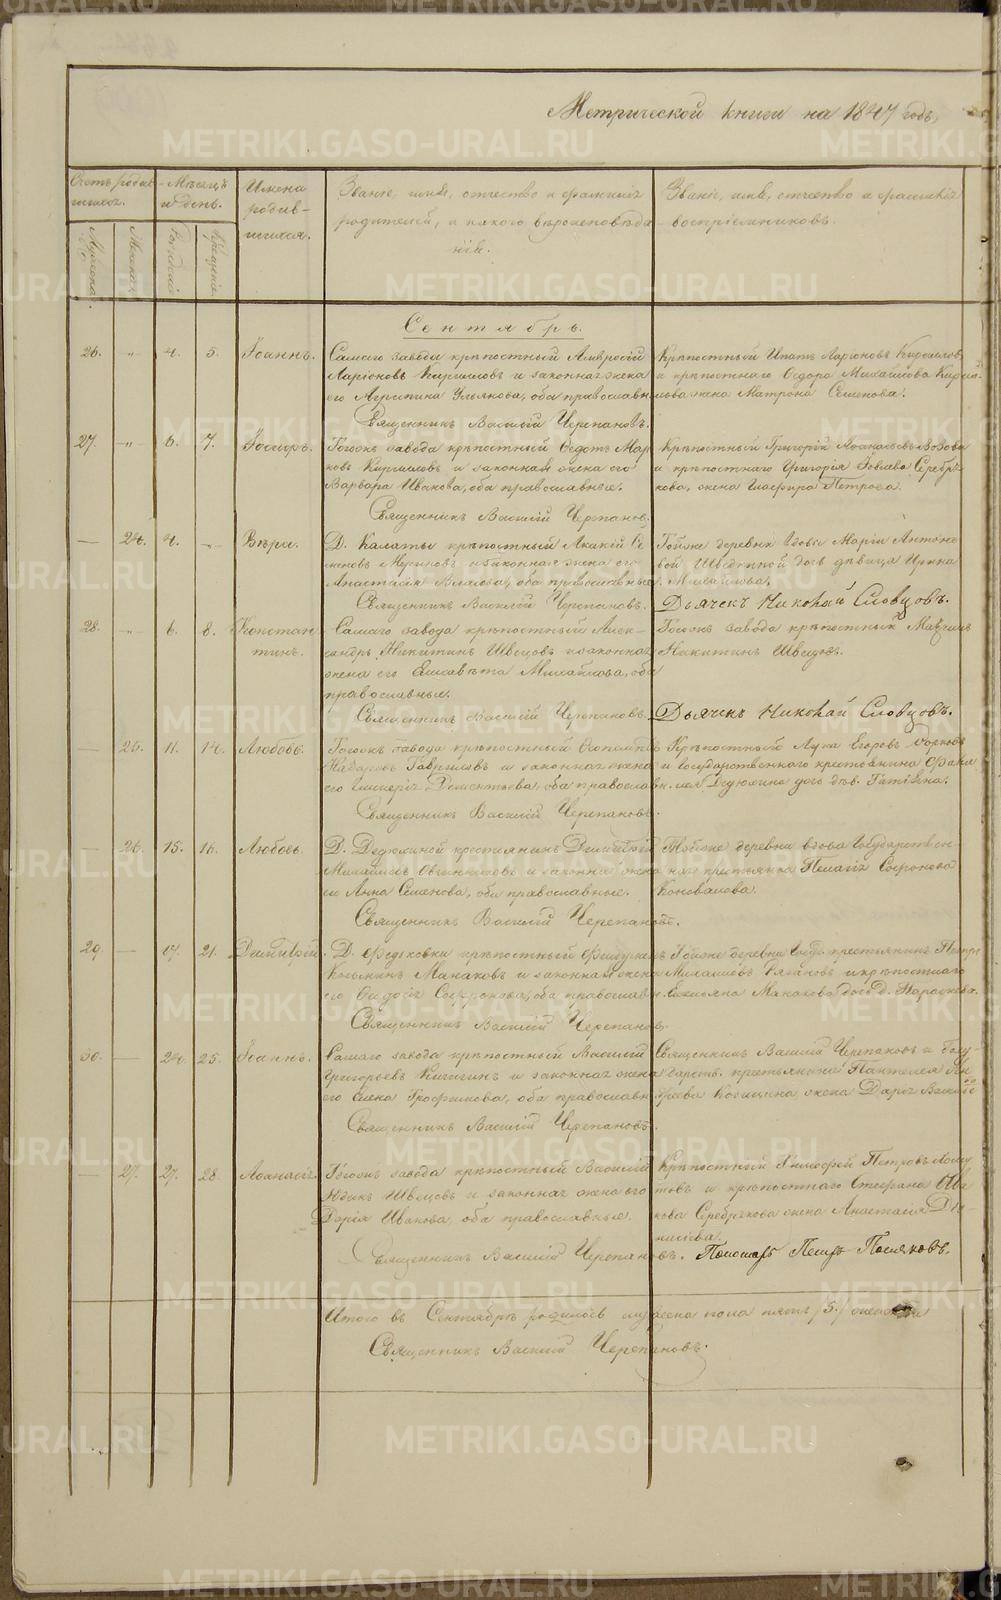 Метрической книги на 1847 годъ,
Счетъ родив-
шихся.
Мѣсяцъ
и день.
Имена
родив-
шихся.
Званіе, имя, отчество и фамилія
родителей, и какого вѣроисповѣда-
нія.
Званіе, имя, отчество и фамилія
воспріемниковъ.
Мужеска.
Женска.
Рожденія
Крещенія.
Сентябрь.
26. -"- 4. 5. Іоаннъ.
Самаго завода крѣпостный Амвросій
Ларіоновъ Кирилловъ и законная жена
его Агрипина Ульянова, оба православн
Священникъ Василій Черепановъ.
Крѣпостный Ипатъ Ларіоновъ Кирилловъ
и крѣпостнаго Ѳедора Михайлова Кирил-
лова жена Матрона Семенова.
27. -"- 6. 7.
Тогожъ завода крѣпостный Ѳедотъ Мар
ковъ Кирилловъ и законная жена его
Варвара Иванова, оба православные.
Священникъ Василій Черепанов.
Крѣпостный Григорій
и крѣпостнаго Григорія Серебря
кова, жена Гласфира Петрова.
— 24. 4. -"- Вѣра.
Д. Калаты крѣпостный Акакій Се
меновъ и законная жена его
Анастасія Власова, оба православные.
Священникъ Василій Черепановъ.
Тойже деревни вдовы Маріи Антоне
вой дочь дѣвица Ирина
Михайлова.
Дьячекъ Николай Словцовъ.
28. -"- 6. 8. Констан
тинъ.
Самаго завода крѣпостный Алек-
сандръ Никитинъ Швецовъ и законная
жена его Елисавета Михайлова, оба
православные.
Священникъ Василій Черепановъ.
Тогожъ завода крѣпостный
Никитинъ Швецовъ.
Дьячекъ Николай Словцовъ.
— 25. 11. 14. Любовь.
Тогожъ завода крѣпостный
Назаровъ Гавриловъ и законная жена
его Гликерія Дементьева, оба православн.
Священникъ Василій Черепановъ.
Крѣпостный Лука Егоровъ
и государственнаго крестьянина
Дедюхина дочь дѣв. Татіана.
— 26. 15. 16. Любовь.
Д. Дедюхиной крестьянинъ Димитрій
Михайловъ Овчинниковъ и законная жена
его Анна Семенова, оба православные.
Священникъ Василій Черепановъ.
Тойже деревни вдова государствен-
наго крестьянка Пелагія Софронова
Коновалова.
29 — 17. 21. Димитрій.
Д. Ѳедьковки крѣпостный
Козьминъ Манаковъ и законная жена
его Ѳедосія Софронова, оба православн
Священникъ Василій Черепановъ.
Тойже деревни крестьянинъ Петръ
и крѣпостнаго
Манакова дочь д. Параскева.
30. — 24. 25. Іоаннъ.
Самаго завода крѣпостный Василій
Григорьевъ Кичигинъ и законная жена
его Елена Трофимова, оба православн
Священникъ Василій Черепановъ.
Священникъ Василій Черепановъ и госу-
дарств. крестьянина Пантелея Ан
дреева жена Дарія
— 27. 27. 28. Аѳанасія
Тогожъ завода крѣпостный Василій
Швецовъ и законная жена его
Дарія Иванова, оба православные.
Священникъ Василій Черепановъ.
Крѣпостный Петровъ
и крѣпостнаго Стефана
Серебрякова жена Анастасія Діо-
нисіева.
Пономарь Петръ Поляковъ.
Итого въ Сентябрѣ родилось мужеска пола пять /5./ женска
Священникъ Василій Черепановъ.
METRIKI.GASO-URAL.RU